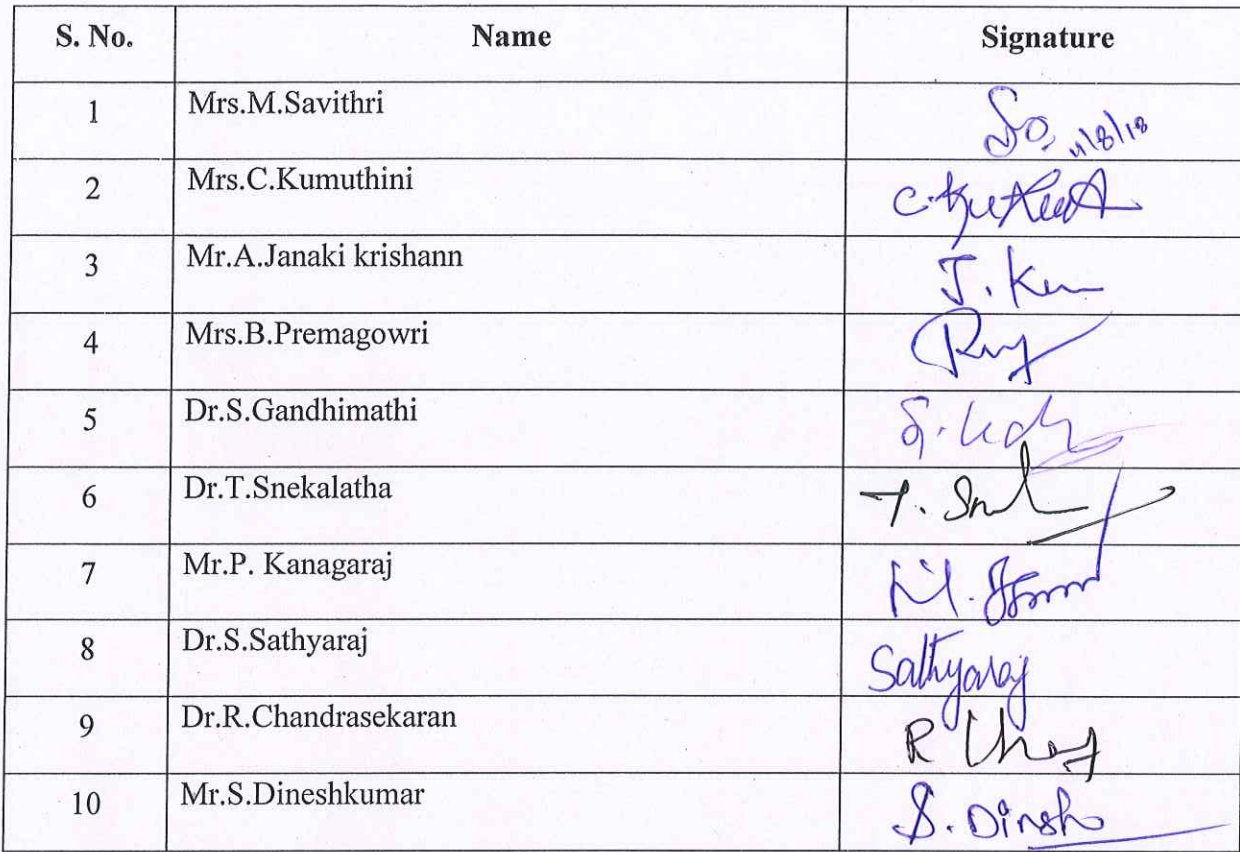 S. No. Name Signature
1 Mrs.M.Savithri 11/8/18
2 Mrs.C.Kumuthini
3 Mr.A.Janaki krishann J. K
4 Mrs.B.Premagowri
5 Dr.S.Gandhimathi
6 Dr.T.Snekalatha
7 Mr.P. Kanagaraj
8 Dr.S.Sathyaraj Sathyaraj
9 Dr.R.Chandrasekaran
10 Mr.S.Dineshkumar S. Dinesh